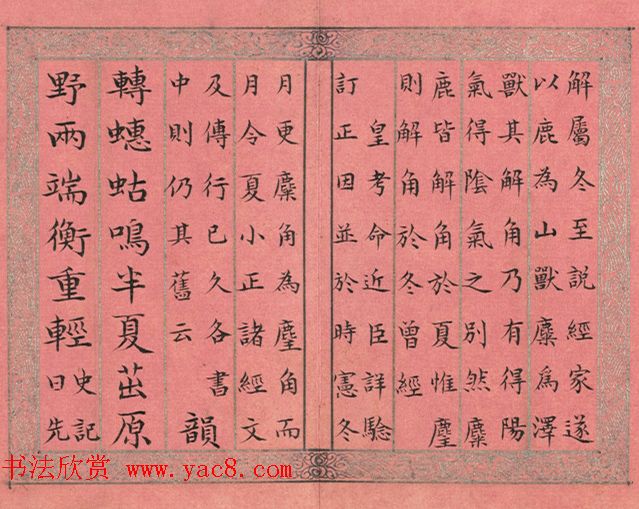 解屬冬至說經家遂
以鹿為山獸麋為澤
獸其解角乃有得陽
氣得隂氣之別然麋
鹿皆解角於夏惟麈
則解角於冬曾經
皇考命近臣詳驗
訂正因並於時憲冬
月更麋角為麈角而
月令夏小正諸經文
及傳行已久各書
中則仍其舊云
韻
轉蟪蛄鳴半夏茁原
野兩端衡重輕
史記
曰先
书法欣赏 www.yac8.com